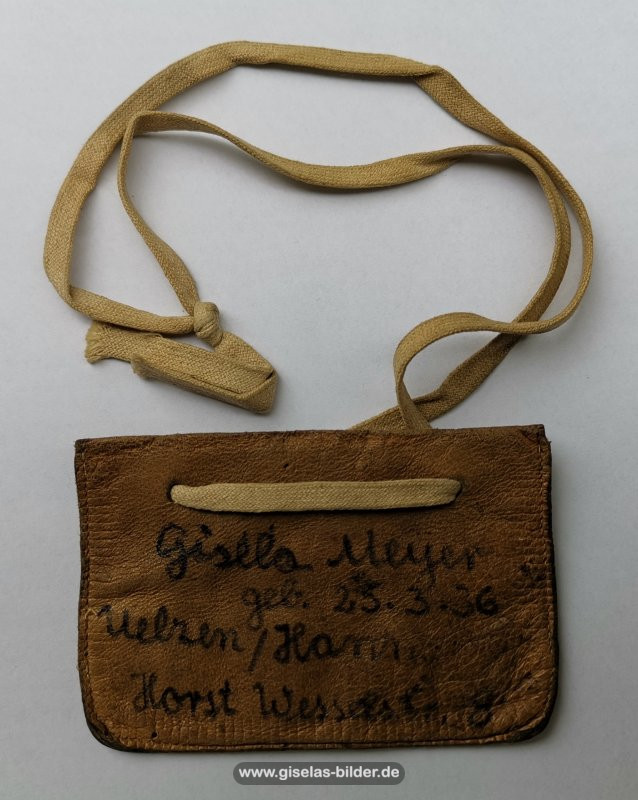 Gisela Meyer
geb. 25.3.36
Uelzen/Hann
Horst Wessels
www.giselas-bilder.de